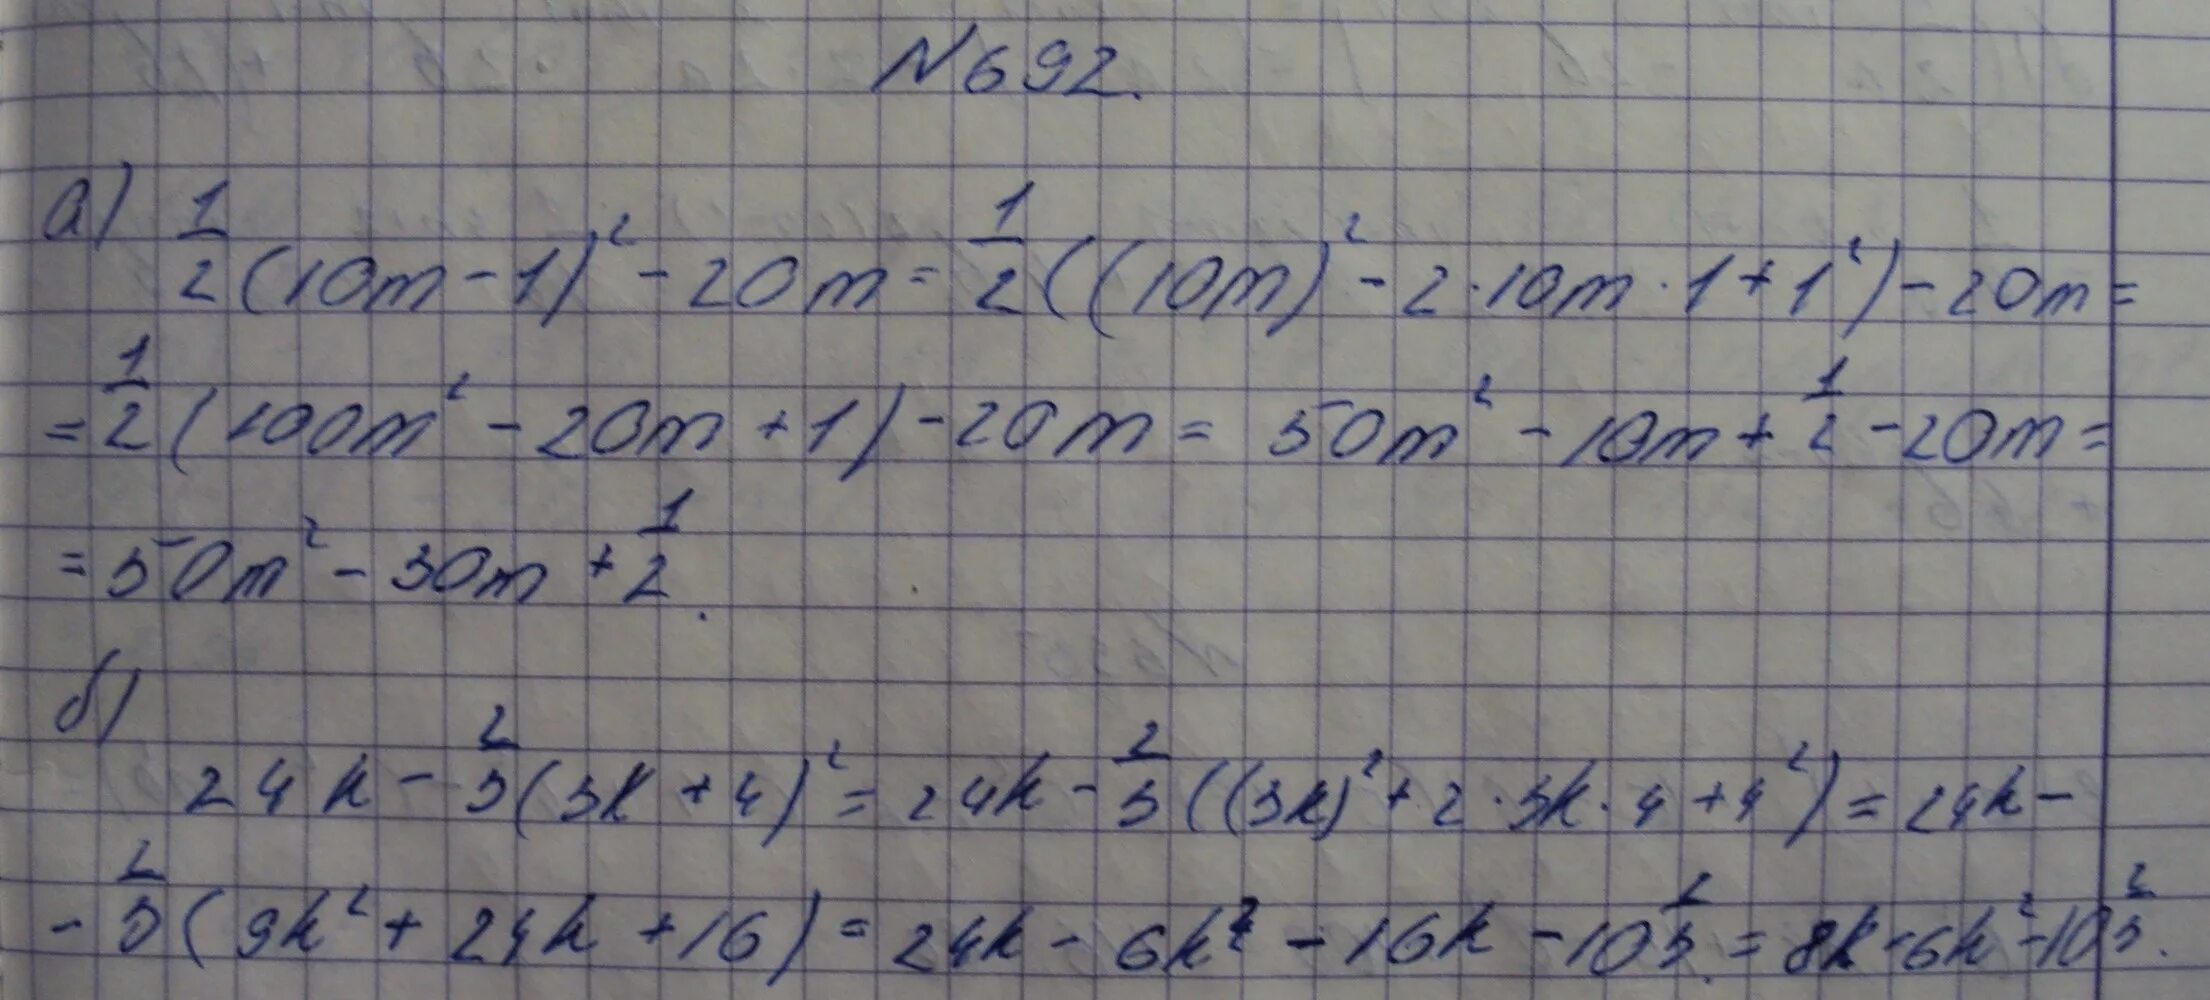 N 692.
а) 1/2 (10m - 1)² - 20m = 1/2 ((10m)² - 2·10m·1 + 1²) - 20m =
= 1/2 (100m² - 20m + 1) - 20m = 50m² - 10m + 1/2 - 20m =
= 50m² - 30m + 1/2.
б)
24k - 2/3 (3k + 4)² = 24k - 2/3 ((3k)² + 2·3k·4 + 4²) = 24k -
- 2/3 (9k² + 24k + 16) = 24k - 6k² - 16k - 10 2/3 = 8k - 6k² - 10 2/3.